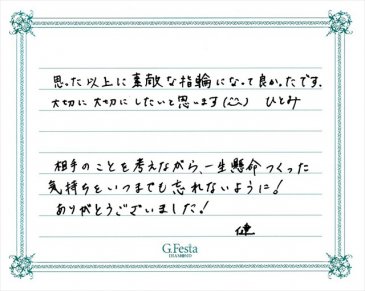 思った以上に素敵な指輪になって良かったです。
大切に大切にしたいと思います(^^) ひとみ
相手のことを考えながら、一生懸命つくった
気持ちをいつまでも忘れないように！
ありがとうございました！
健
G.Festa
DIAMOND